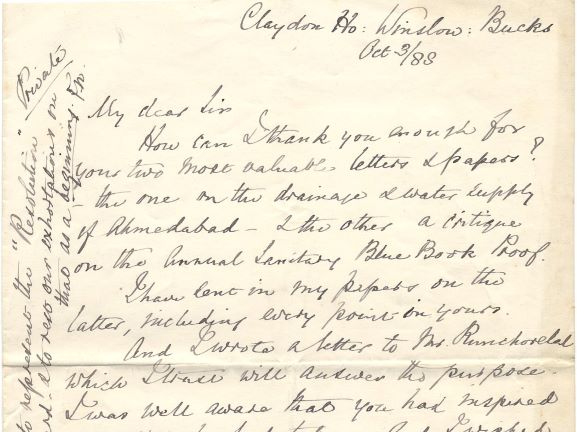 Claydon Ho: Winslow: Bucks
Oct 3/88
Private
My dear Sir
How can I thank you enough for
your two most valuable letters & papers?
- the one on the drainage & water supply
of Ahmedabad - & the other a critique
on the Annual Sanitary Blue Book Proof.
I have sent in my papers on the
latter, including every point in yours.
And I wrote a letter to Mr. Runchorelal
which I trust will answer the purpose.
I was well aware that you had inspired
And I wished
to represent the "Resolution"
& to rest our exhortations on
that as a beginning. F.N.